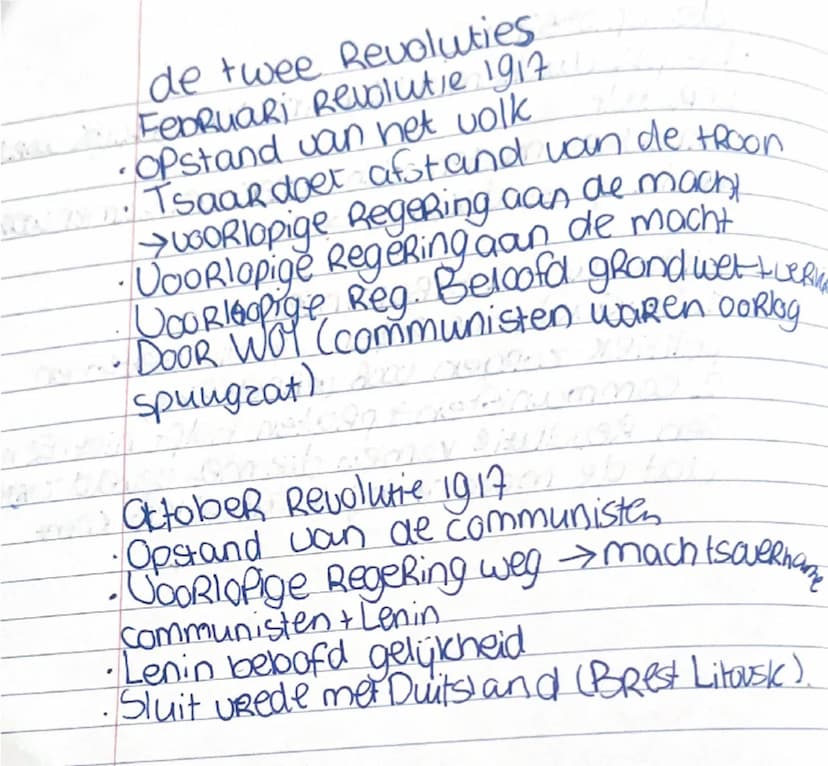 de twee Revoluties
Februari Revolutie 1917
· opstand van het volk
· Tsaar doet afstand van de troon
→ voorlopige Regering aan de macht
· Voorlopige Regering aan de macht
· Voorloopige Reg. Beloofd grondwet +
· Door WO1 (communisten waren oorlog
spuugzat)
October Revolutie 1917
· Opstand van de communisten
· Voorlopige Regering weg → machtsovername
communisten + Lenin
· Lenin beloofd gelijkheid
· Sluit vrede met Duitsland (Brest Litovsk).